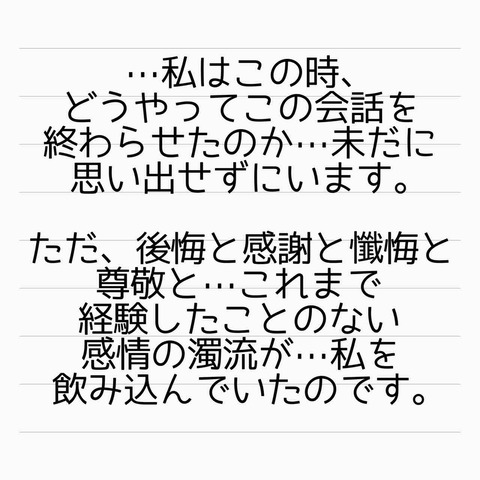 …私はこの時、
どうやってこの会話を
終わらせたのか…未だに
思い出せずにいます。
ただ、後悔と感謝と懺悔と
尊敬と…これまで
経験したことのない
感情の濁流が…私を
飲み込んでいたのです。